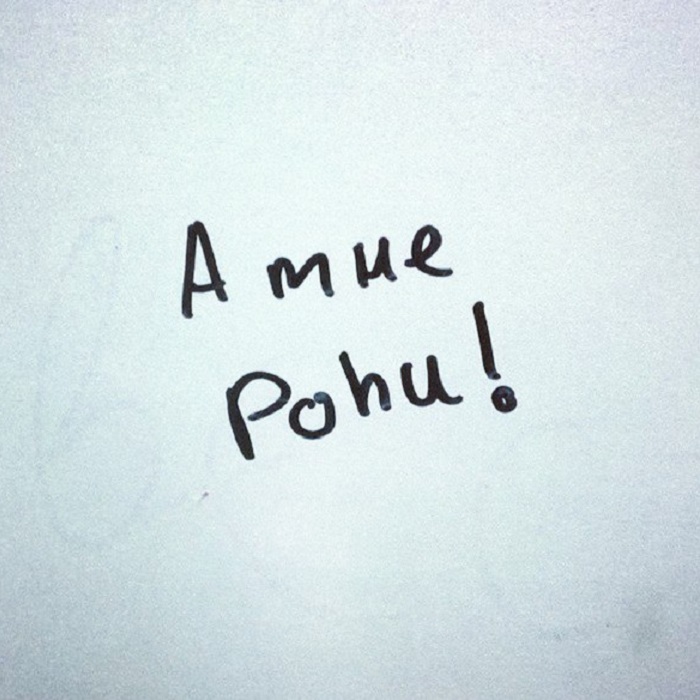 А мне
Pohu!